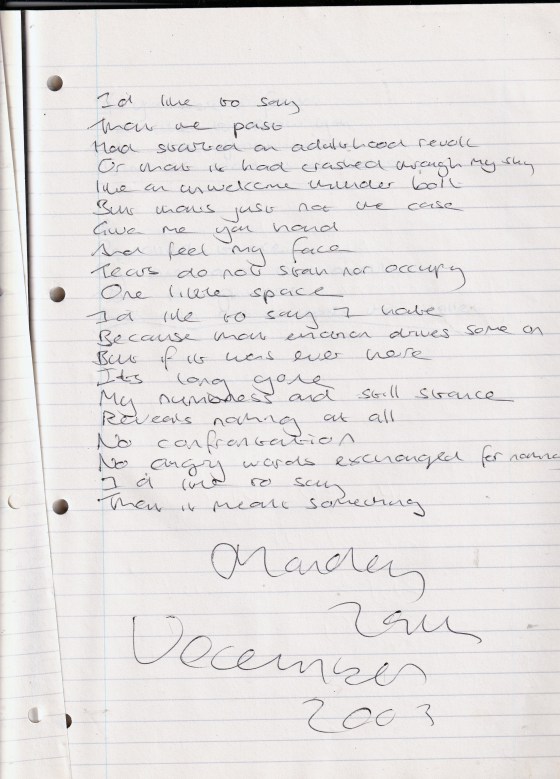 I'd like to say
That the past
Had started an adulthood revolt
Or that it had crashed through my sky
like an unwelcome thunder bolt
But thats just not the case
Give me you hand
And feel my face
Tears do not stain nor occupy
One little space
I'd like to say I hate
Because that emotion drives some on
But if it was ever here
Its long gone
My numbness and still stance
Reveals nothing at all
No confrontation
No angry words exchanged for
I'd like to say
That it meant something
Monday
December
2003